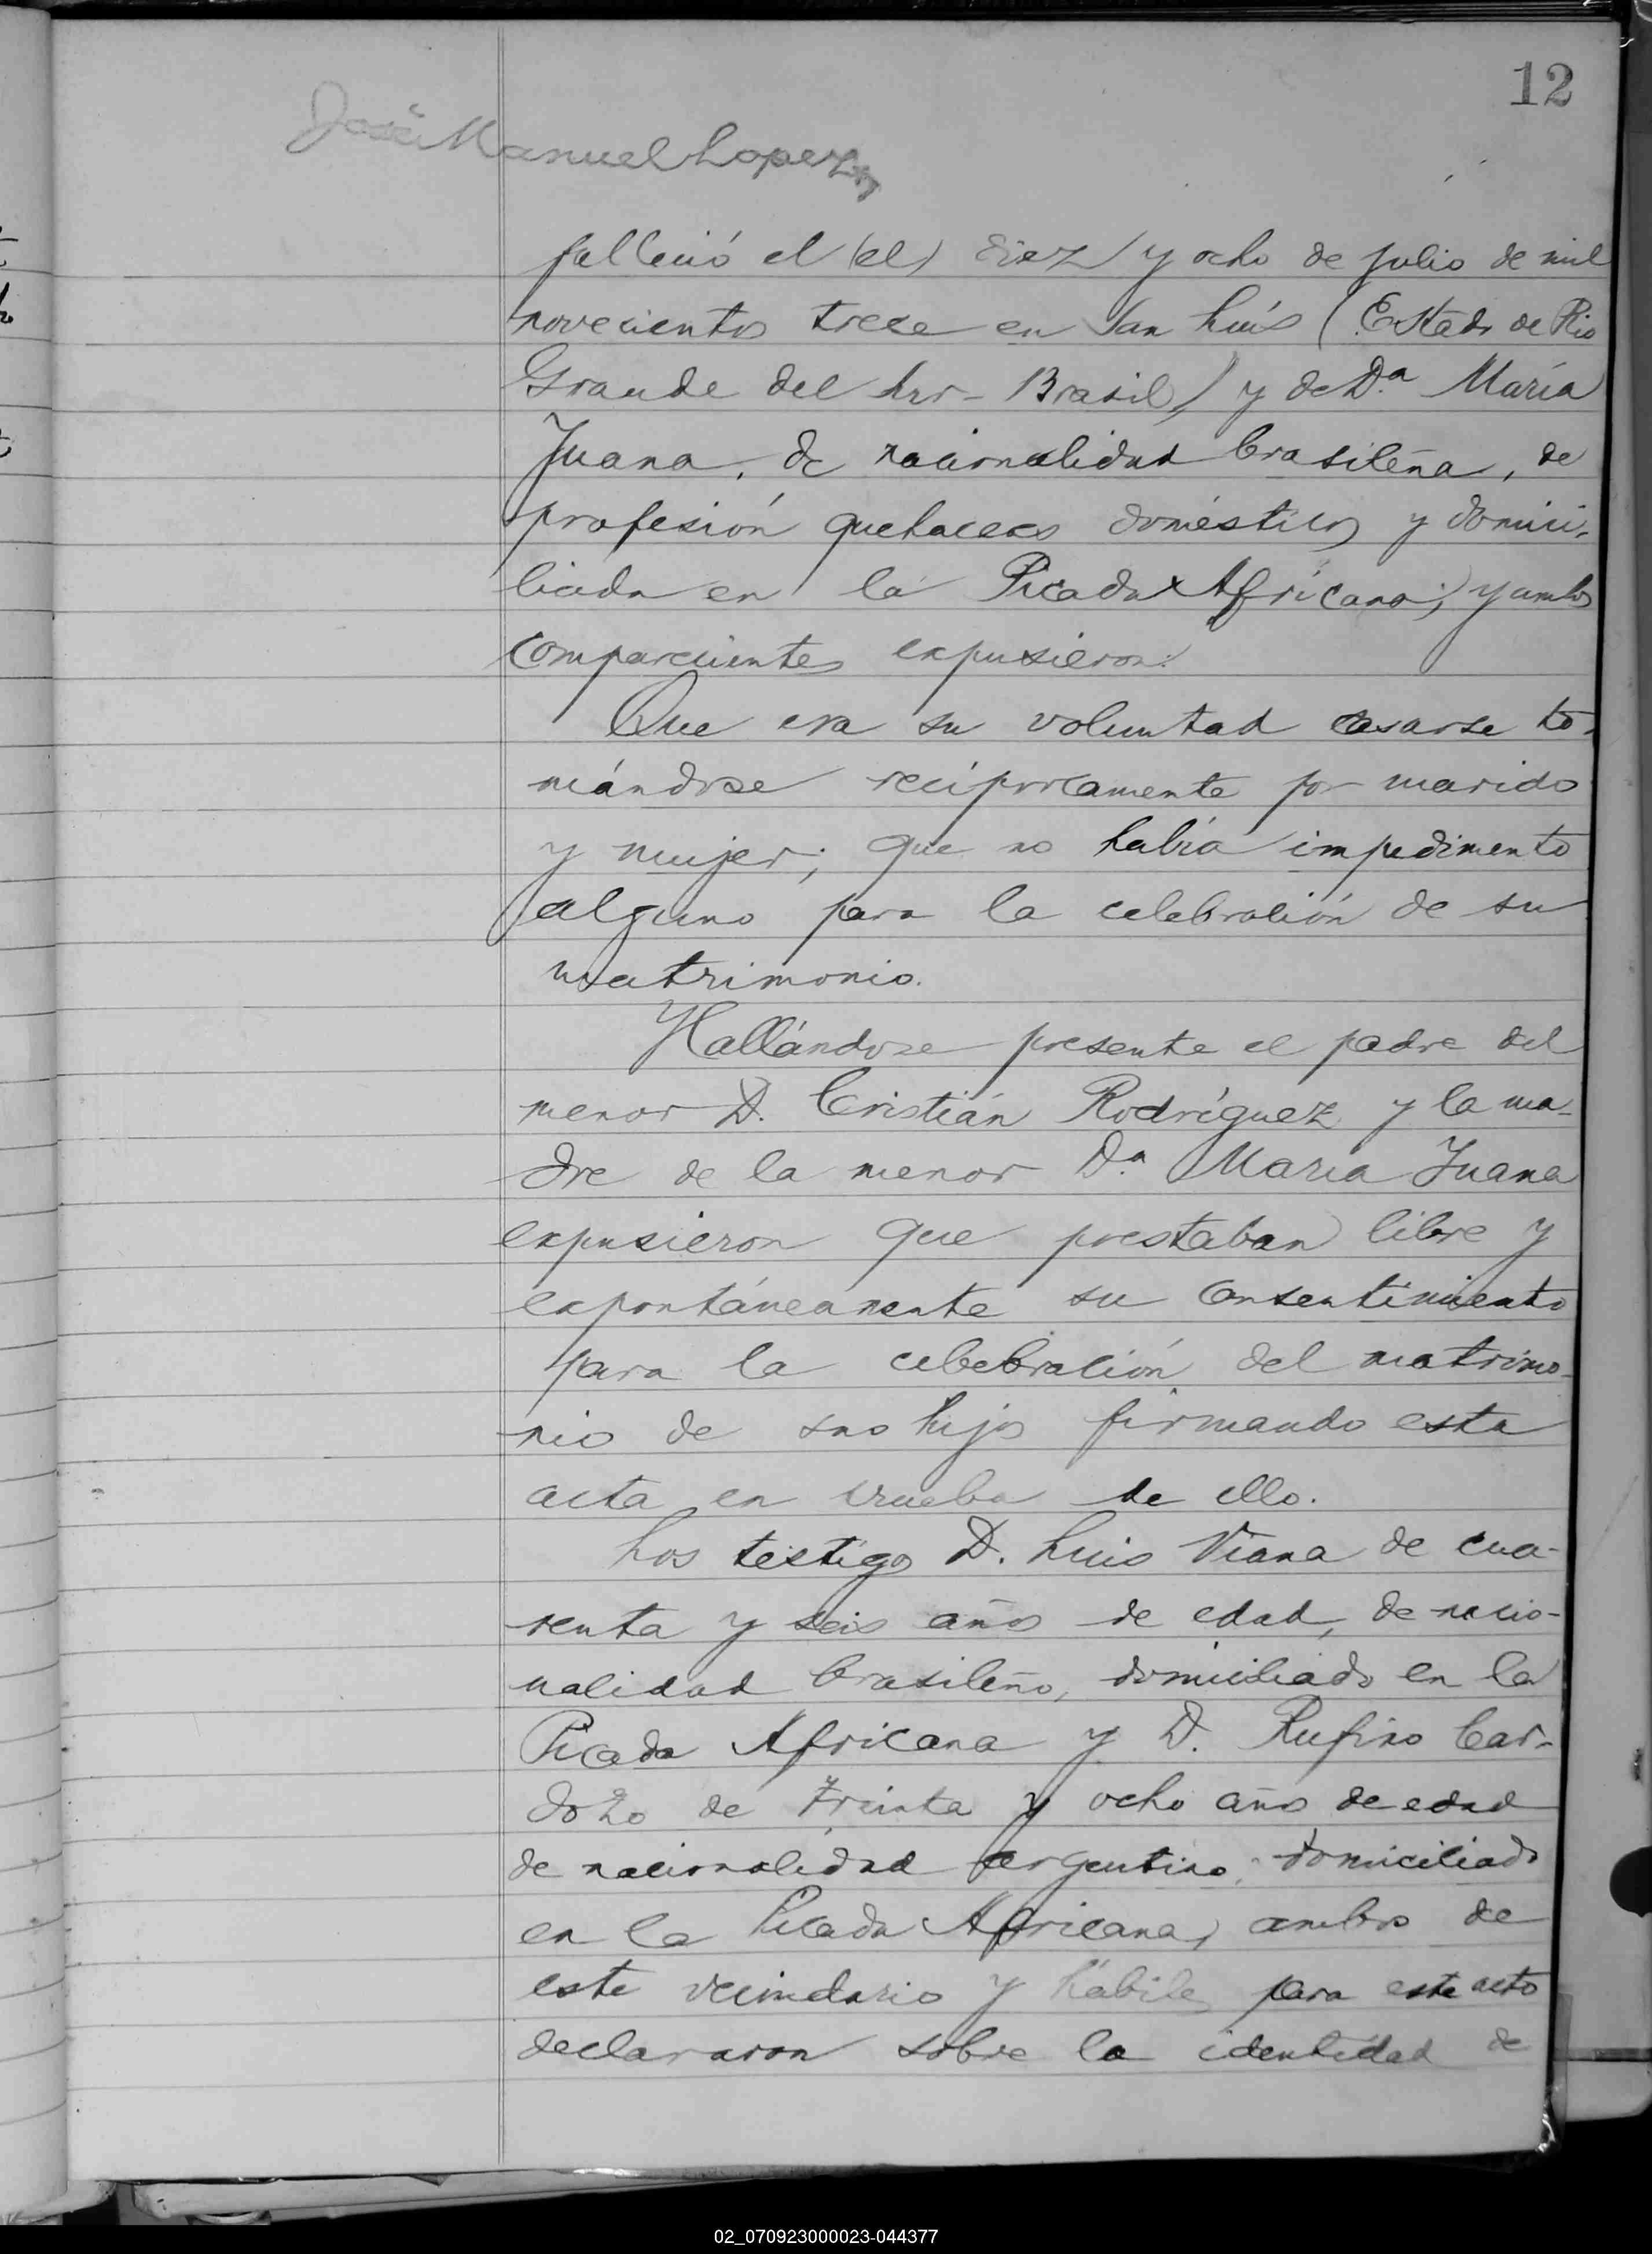 12
José Manuel Lopez
falleció el (el) diez y ocho de julio de mil
novecientos trece en San Luís (Estado de Rio
Grande del Sur - Brasil) y de Dª María
Juana, de nacionalidad brasileña, de
profesión quehaceres domésticos y domici-
liada en la Picada Africana; y ambos
comparecientes expusieron:
Que era su voluntad casarse to-
mándose recíprocamente por marido
y mujer; que no había impedimento
alguno para la celebración de su
matrimonio.
Hallándose presente el padre del
menor D. Cristián Rodríguez y la ma-
dre de la menor Dª María Juana
expusieron que prestaban libre y
expontáneamente su consentimiento
para la celebración del matrimo-
nio de sus hijos firmando esta
acta en prueba de ello.
Los testigos D. Luis Viana de cua-
renta y seis años de edad, de nacio-
nalidad brasileño, domiciliado en la
Picada Africana y D. Rufino Car-
dozo de treinta y ocho años de edad
de nacionalidad argentino, domiciliado
en la Picada Africana, ambos de
este vecindario y hábiles para este acto
declararon sobre la identidad de
02_070923000023-044377